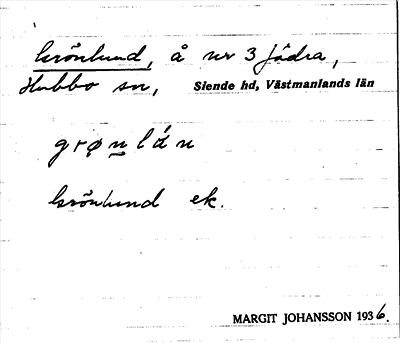 Grönlund, å nr 3 Jädra,
Hubbo sn, Siende hd, Västmanlands län
grøn lán
Grönlund ek.
MARGIT JOHANSSON 1936.